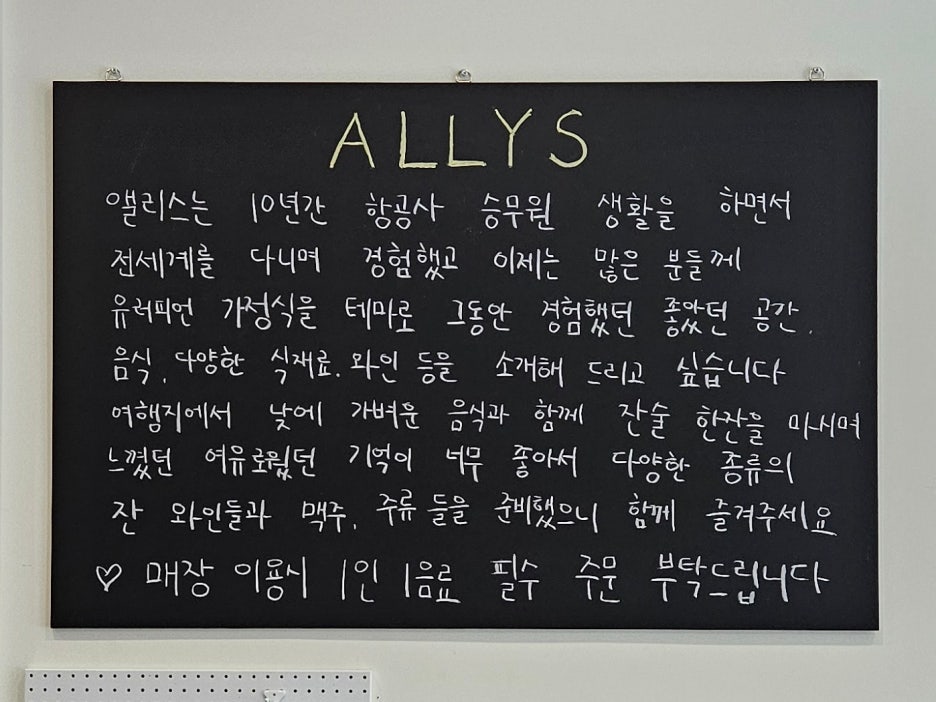 ALLYS
앨리스는 10년간 항공사 승무원 생활을 하면서
전세계를 다니며 경험했고 이제는 많은 분들께
유러피언 가정식을 테마로 그동안 경험했던 좋았던 공간,
음식, 다양한 식재료, 와인 등을 소개해 드리고 싶습니다
여행지에서 낮에 가벼운 음식과 함께 잔술 한잔을 마시며
느꼈던 여유로웠던 기억이 너무 좋아서 다양한 종류의
잔 와인들과 맥주, 주류 들을 준비했으니 함께 즐겨주세요
♡ 매장 이용시 1인 1음료 필수 주문 부탁드립니다